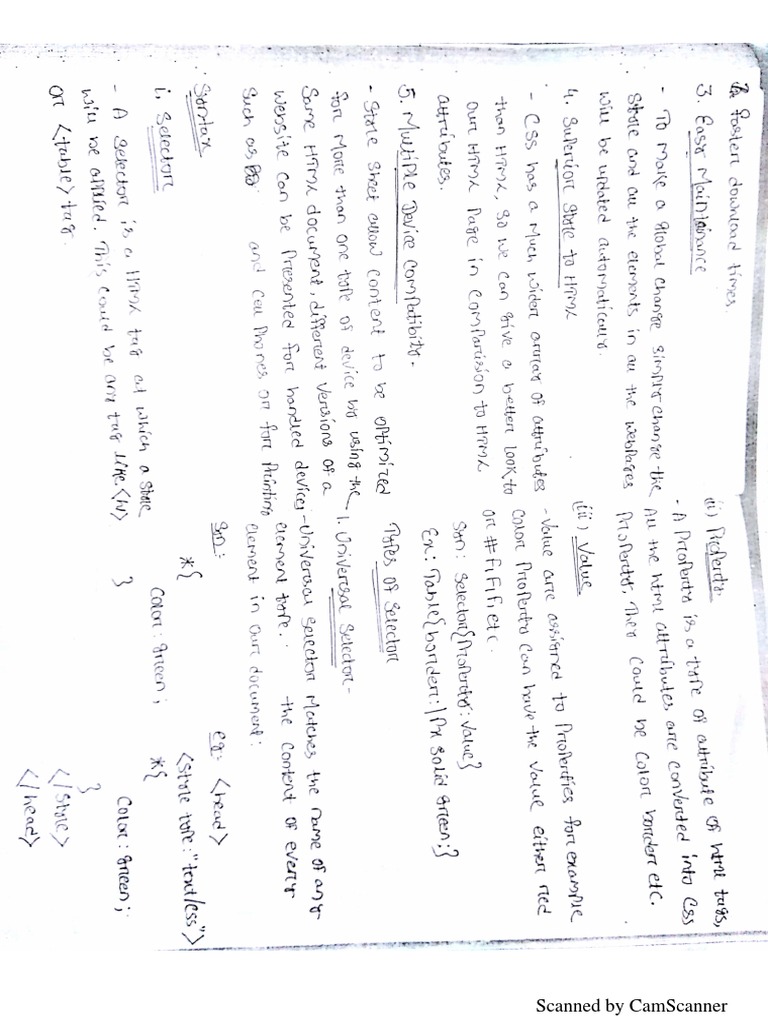 2. Faster download times.
3. Easy Maintainance
- To make a global change simply change the
style and all the elements in all the webpages
will be updated automatically.
4. Superior style to HTML
- CSS has a much wider array of attributes
than HTML, so we can give a better look to
our HTML page in comparission to HTML
attributes.
5. Multiple Device Compatibity.
- Style sheet allow content to be optimized
for more than one type of device by using the
same HTML document, different versions of a
website can be presented for handled devices
such as and cell phones or for printing
Syntax
i. Selector
- A selector is a HTML tag at which a style
will be applied. This could be any tag like <h1>
or <table> tag.
(ii) Property
- A property is a type of attribute of html tags,
All the html attributes are converted into css
property, They could be color border etc.
(iii) Value
- Value are assigned to properties for example
color property can have the value either red
or #F1F1F1 etc.
Syn: Selector{Property: value}
Ex: Table{border: 1px solid green;}
Types of selector
1. Universal Selector -
- Universal selector matches the name of any
element type. the content of every
element in our document:
Syn:
*{
color: green;
}
eg: <head>
<style type:"text/css">
*{
color: green;
}
</style>
</head>
Scanned by CamScanner